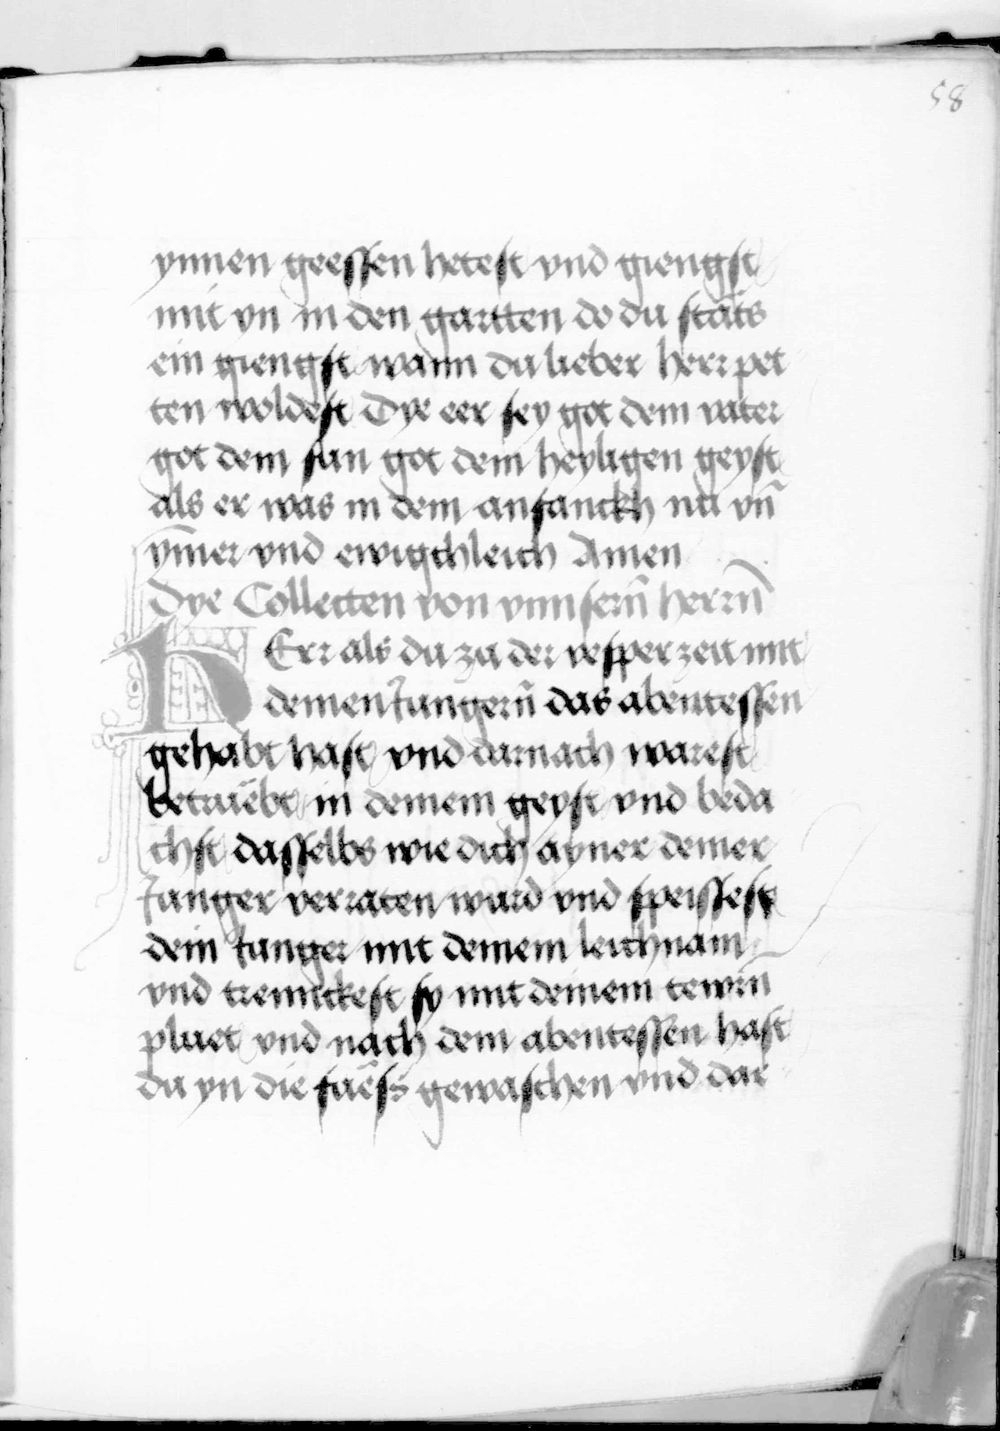 58
ynnen geessen hetest vnd giengst
mit yn in den gartten do du stäts
ein giengst wann du lieber herr pet
ten woldest Dye eer sey got dem vater
got dem sun got dem heyligen geyst
als er was in dem anfanckh nu vn̄
ym̄er vnd ewigchleich Amen
Dye Collecten von vnnsern̄ herrn̄
HErr als du zu der vesper zeit mit
deinen Jungern̄ das abentessen
gehabt hast vnd darnach warest
betruëbt in deinem geyst vnd beda
chst dasselbs wie dich ayner deiner
Junger verraten wurd vnd speissest
dein Junger mit deinem leichnam
vnd trennckest sy mit deinem tewrn̄
pluet vnd nach dem abentessen hast
du yn die fuëss gewaschen vnd dar